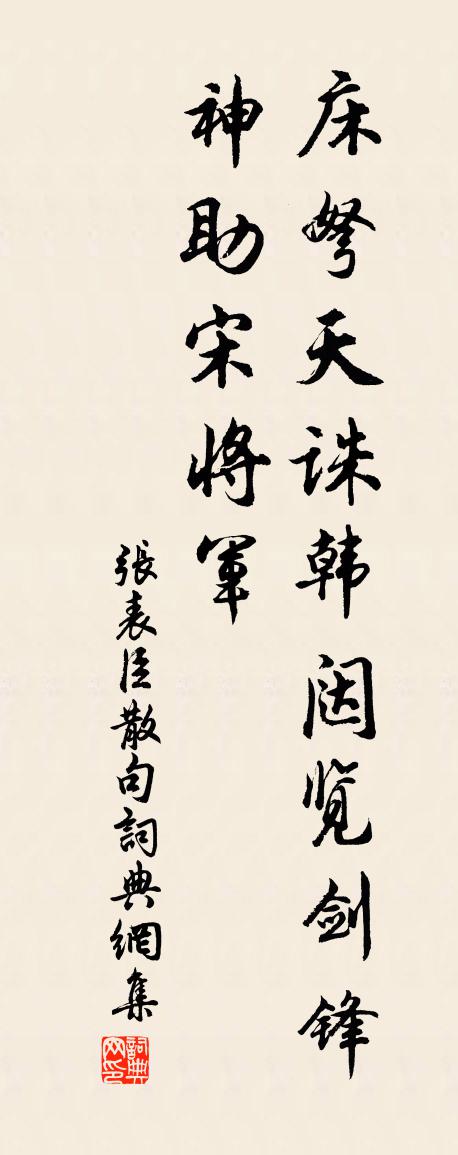 床弩天诛韩闼览剑锋
神助宋将军
張表臣散句詞典網集
詞典网印